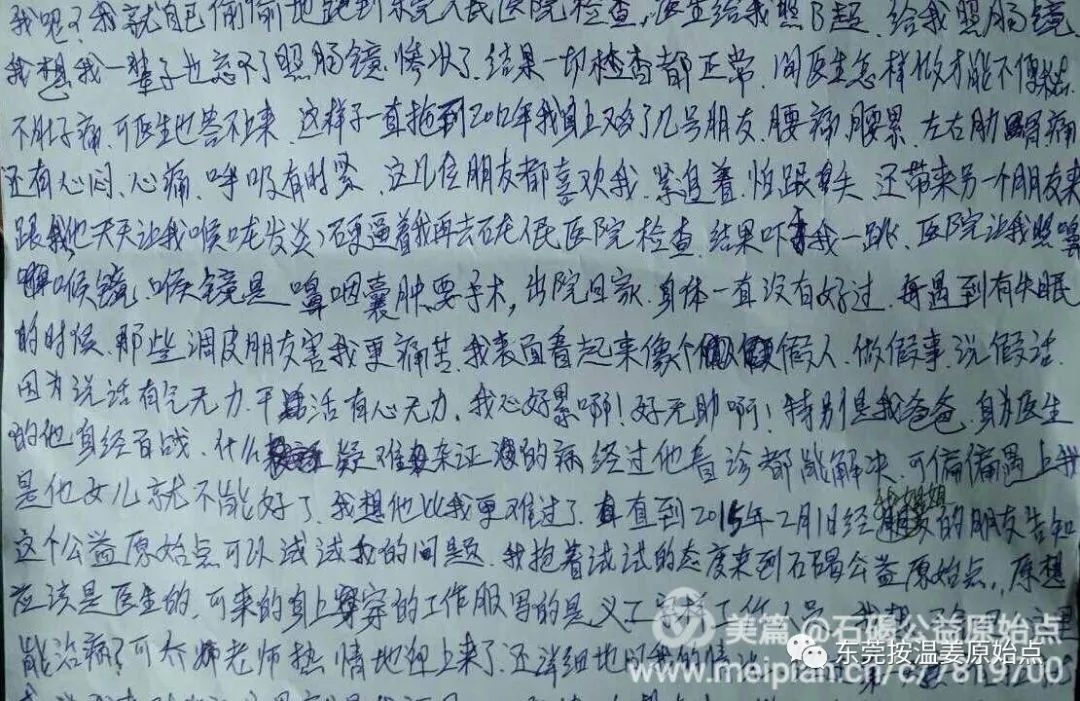 我呢?我就自己偷偷地跑到东莞人民医院检查,医生给我照B超,给我照肠镜
我想我一辈子也忘不了照肠镜,惨炊了,结果一切检查都正常,问医生怎样做才能不便秘
不肚子痛,可医生也答不上来,这样子一直拖到2012年我身上又多了几号朋友,腰痛,腰累,左右肋胃痛
还有心闷、心痛、呼吸有时紧,这几位朋友都喜欢我,紧追着,怕跟失,还带来另一个朋友来
跟我他天天让我喉咙发炎,逼着我再去石龙人民医院检查,结果吓我一跳,医院让我照鼻
喉镜,喉镜是鼻咽囊肿要手术,出院回家,身体一直没有好过,每遇到有失眠
的时候,那些调皮朋友害我更痛苦,我表面看起来像个假人,做假事,说假话,
因为说话有气无力,干活有心无力,我心好累啊!好无助啊!特别是我爸爸,身为医生
的他身经百战,什么疑难杂证的病经过他看诊都能解决,可偏偏遇上我
是他女儿就不能好了,我想他比我更难过了,直到2015年2月1日经姐姐的朋友告知
这个公益原始点可以试试我的问题,我抱着试试的态度来到石碣公益原始点,原想
应该是医生的,可来的身上穿的工作服写的是义工 工作人员,我想
能治病?可乔娜老师热情地迎上来了,还详细地问我的情况
美篇 @石碣公益原始点
东莞按温姜原始点
www.meipian.cn/c/7819700